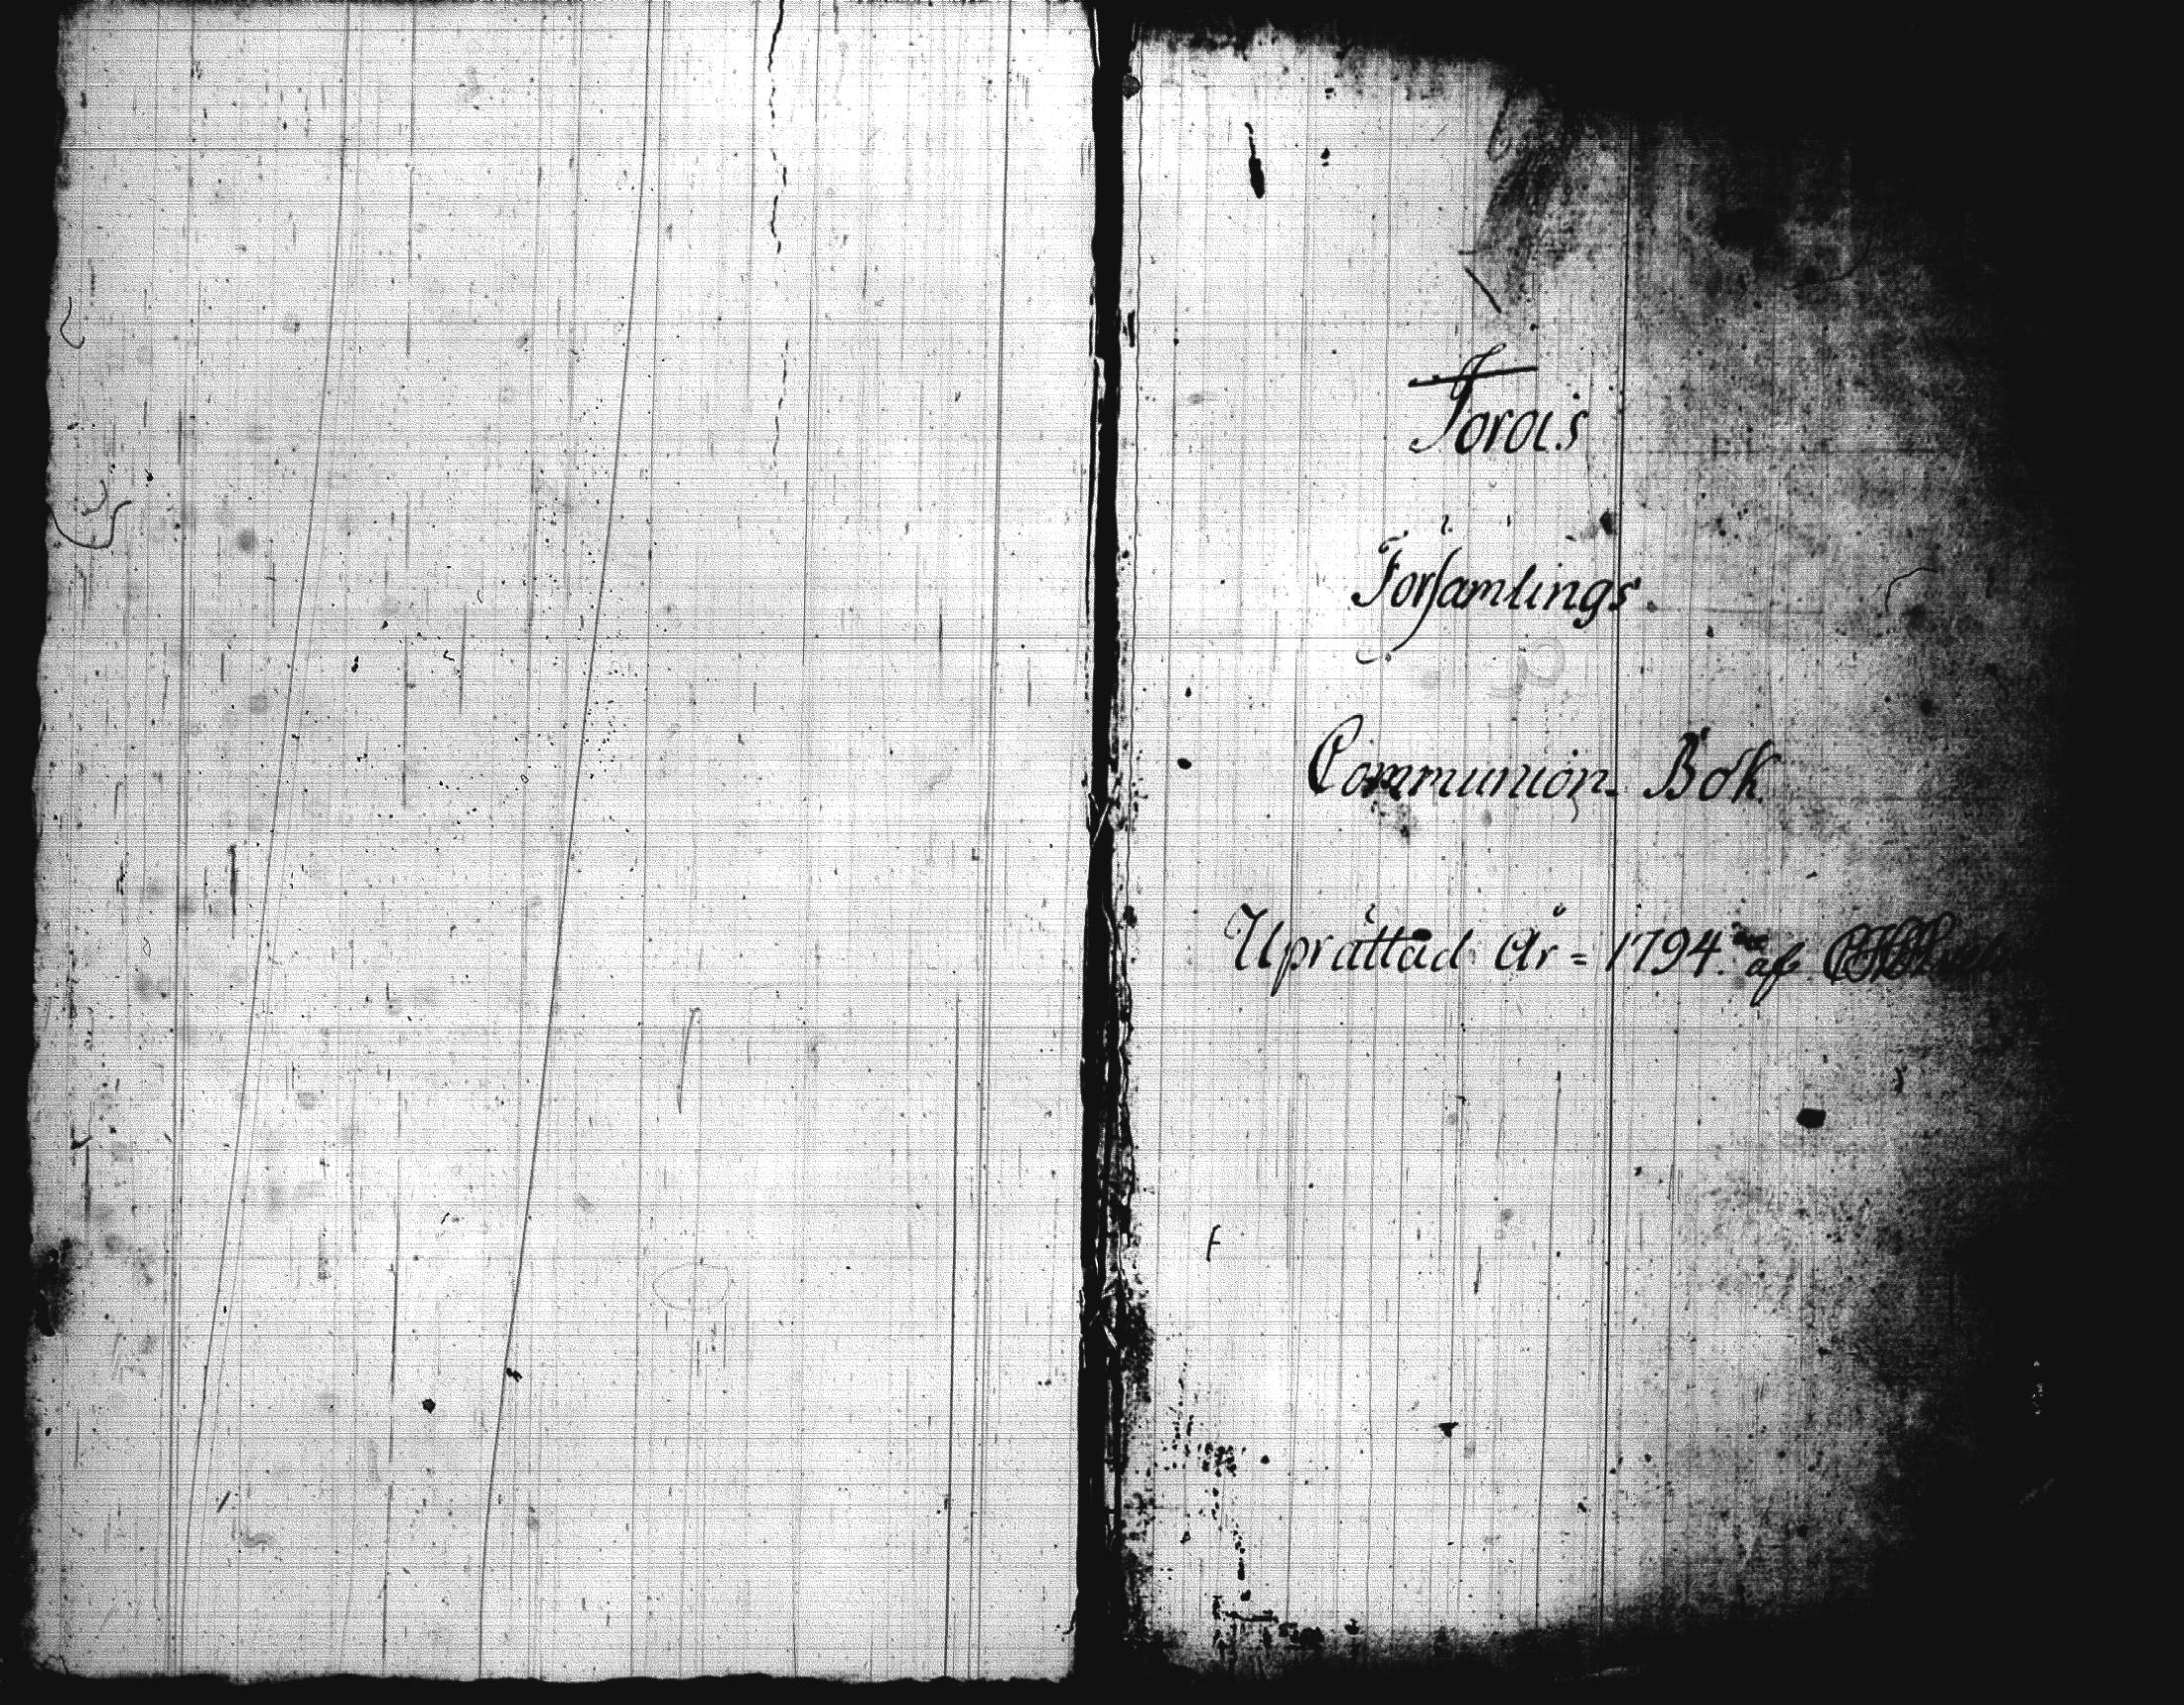 Torois
Församlings
Communion. Bok
Uprättad År = 1794. af